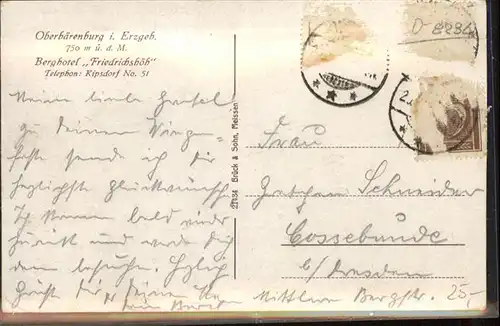 Oberbärenburg i. Erzgeb.
750 m ü. d. M.
Berghotel „Friedrichshöh“
Telephon: Kipsdorf No. 51
D-8284
Meine liebe
zu Deinem Wiegen-
feste sende ich Dir
herzlichste Glückwünsche
Ich komme bald wieder
zurück und werde Dich
dann besuchen. Herzlich
grüßt Dir Deine
Brück & Sohn, Meissen
Frau
Schneider
Cossebaude
b/Dresden
Mittlere Bergstr. 25,-